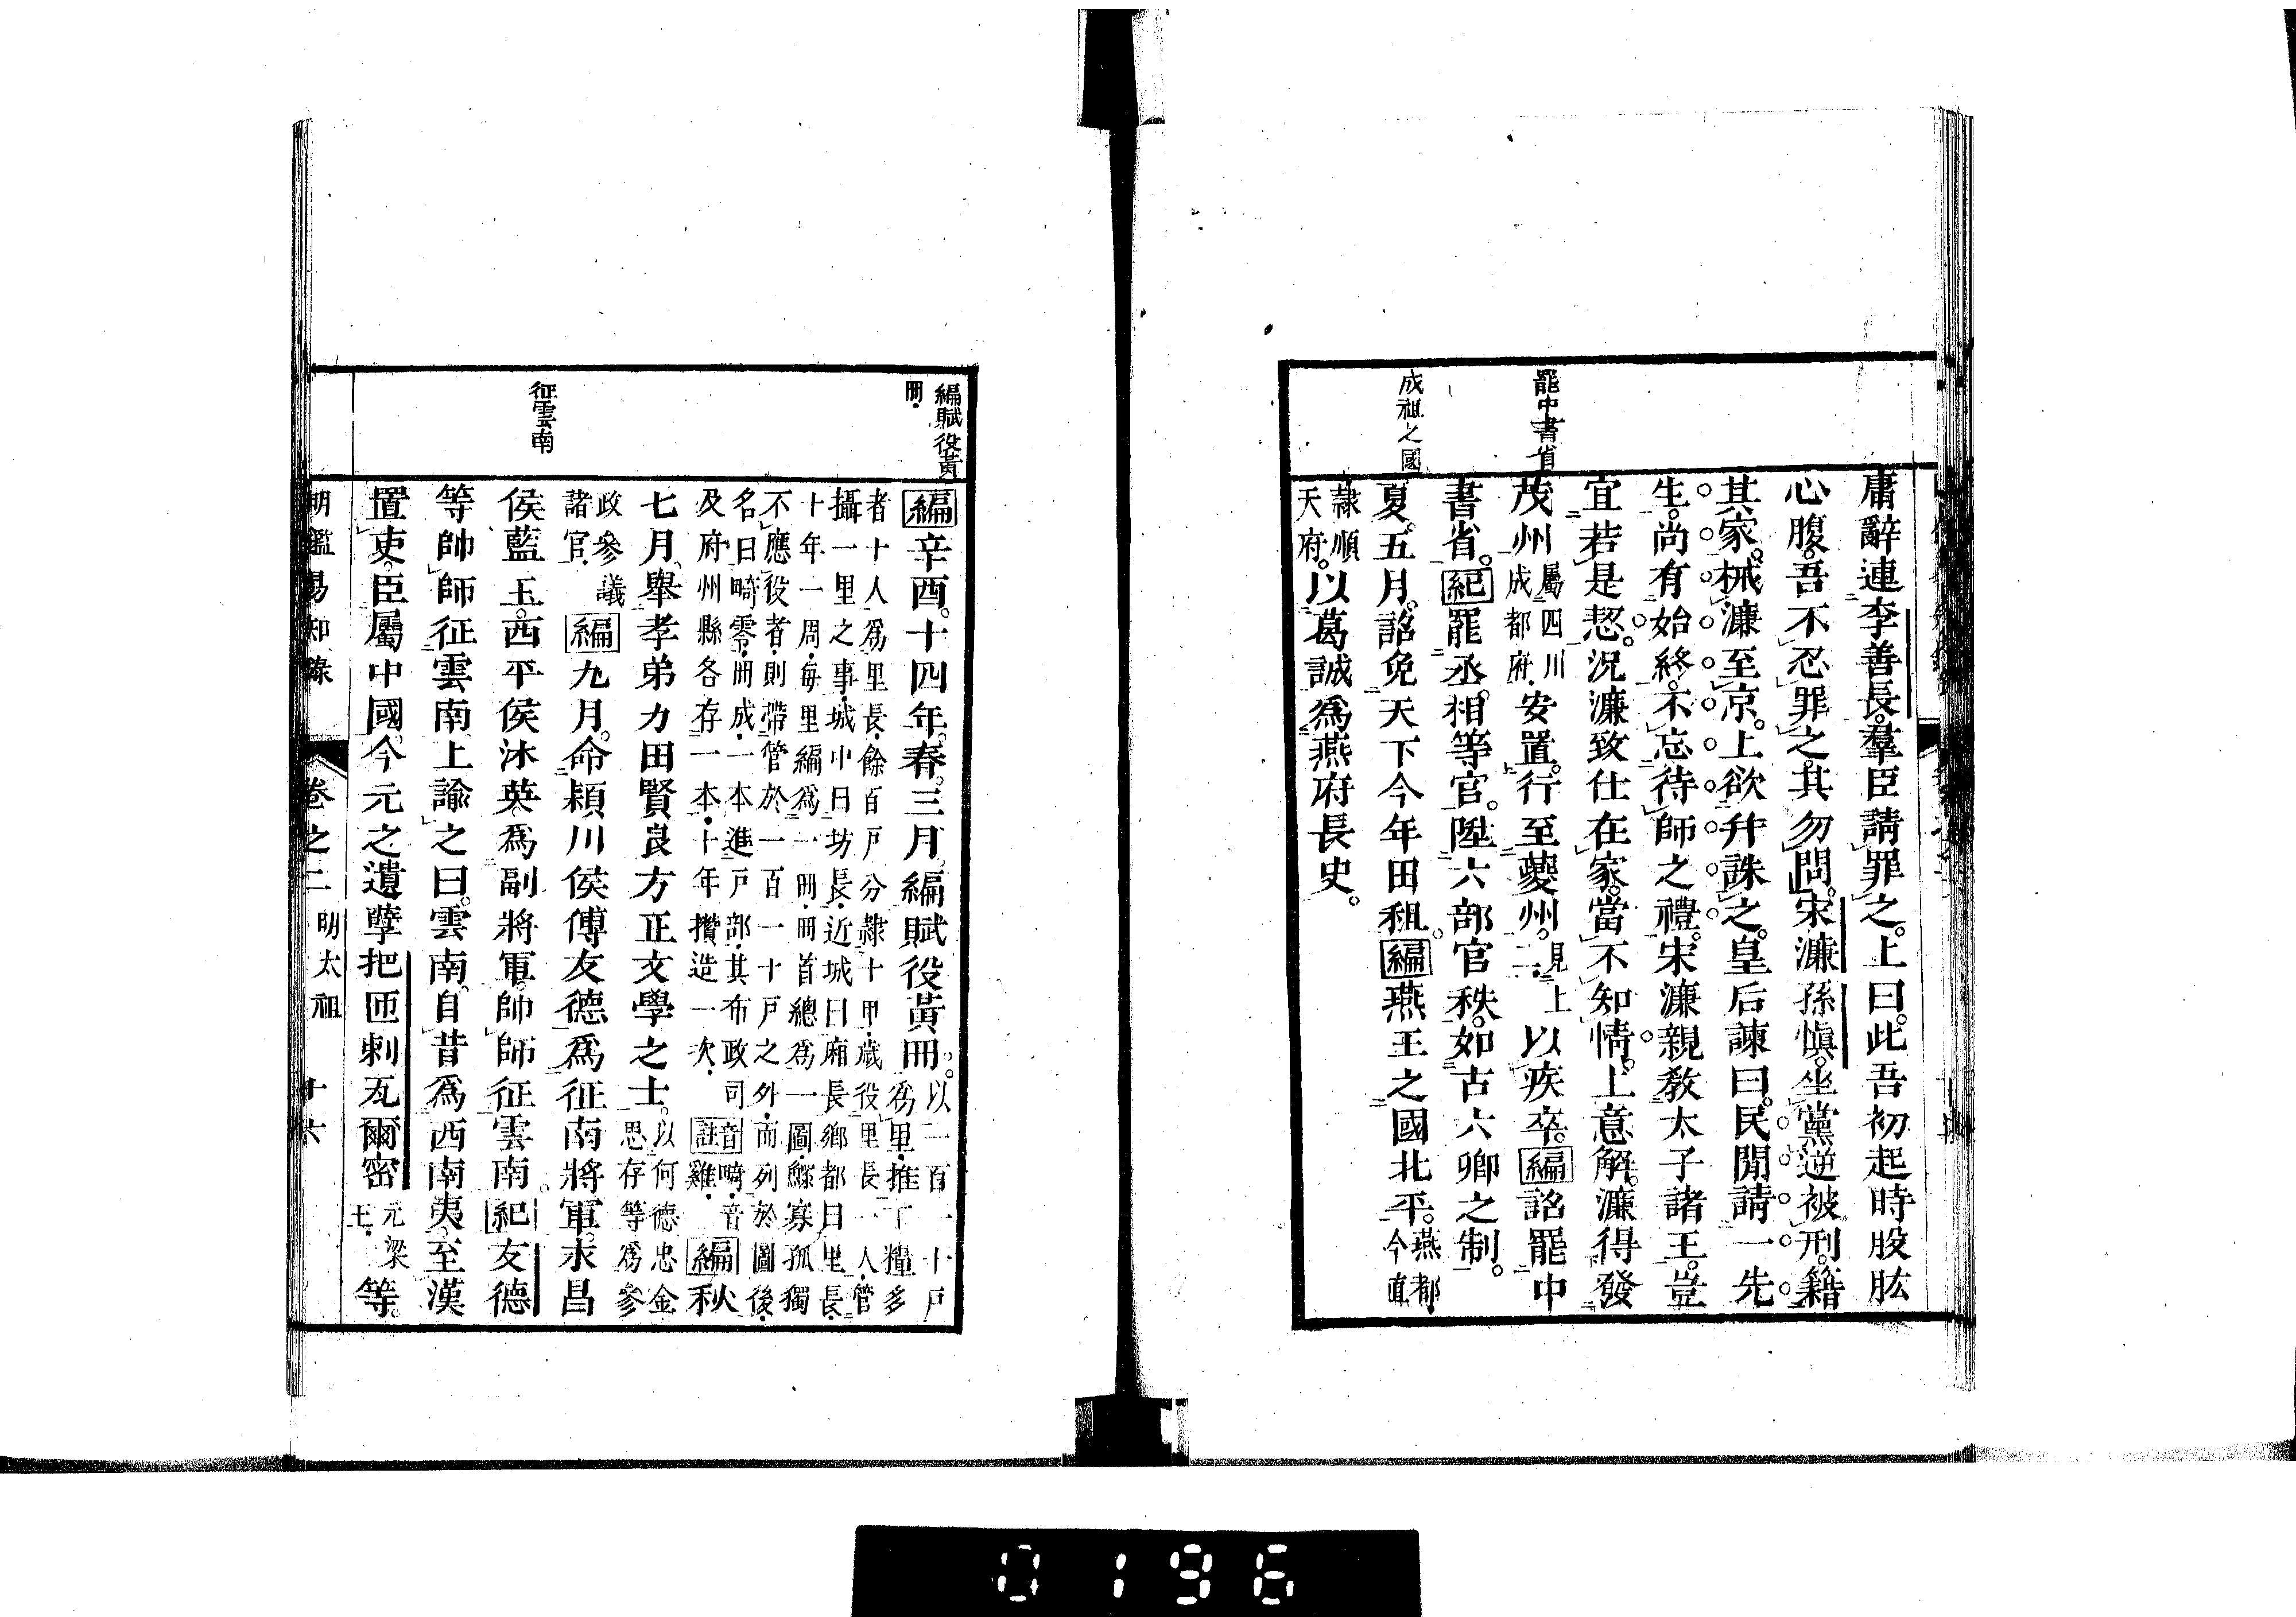 罷中書省
成祖之國
庸辭連李善長。羣臣請罪之。上曰。此吾初起時股肱
心腹。吾不忍罪之。其勿問。宋濂孫愼。坐黨逆被刑。籍
其家。械濂至京。上欲幷誅之。皇后諫曰。民閒請一先
生。尚有始終。不忘待師之禮。宋濂親敎太子諸王。豈
宜若是恝。況濂致仕在家。當不知情。上意解。濂得發
茂州屬四川成都府。安置。行至夔州。見上二。以疾卒。編詔罷中
書省。紀罷丞相等官。陞六部官秩。如古六卿之制。
夏。五月。詔免天下今年田租。編燕王之國北平。燕都今直
隸順天府。以葛誠爲燕府長史。
編賦役黃
冊。
征雲南
編辛酉。十四年。春。三月。編賦役黃冊。以一百一十戶爲里。推丁糧多
者十人爲里長。餘百戶分隸十甲。歲役里長一人。管
攝一里之事。城中曰坊長。近城曰廂長。鄉都曰里長。
十年一周。每里編爲一冊。冊首總爲一圖。鰥寡孤獨
不應役者。則帶管於一百一十戶之外。而列於圖後。
名曰畸零。冊成。一本進戶部。其布政司
及府州縣各存一本。十年攢造一次。音註畸。音雞。編秋
七月。舉孝弟力田賢良方正文學之士。以何德忠金思存等爲參
政參議諸官。編九月。命潁川侯傅友德爲征南將軍。永昌
侯藍玉。西平侯沐英爲副將軍。帥師征雲南。紀友德
等帥師征雲南。上諭之曰。雲南。自昔爲西南夷。至漢
置吏。臣屬中國。今元之遺孽把匝剌瓦爾密元梁王。等。
明鑑易知錄 卷之二 明太祖 十六
0196